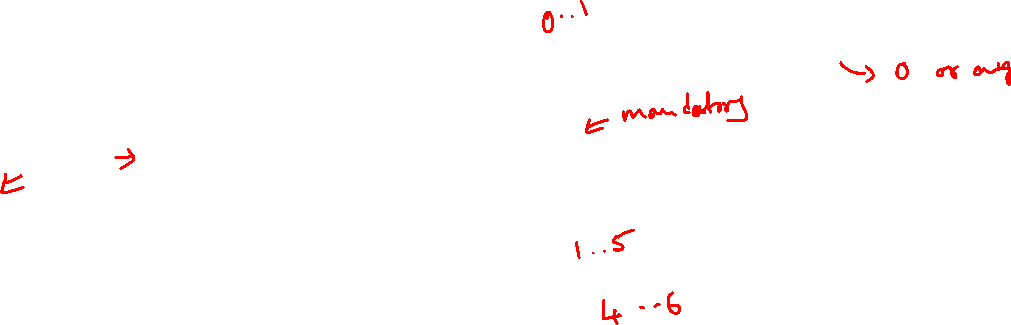 0..1
→ 0 or any
← mandatory
→
←
1..5
4...6